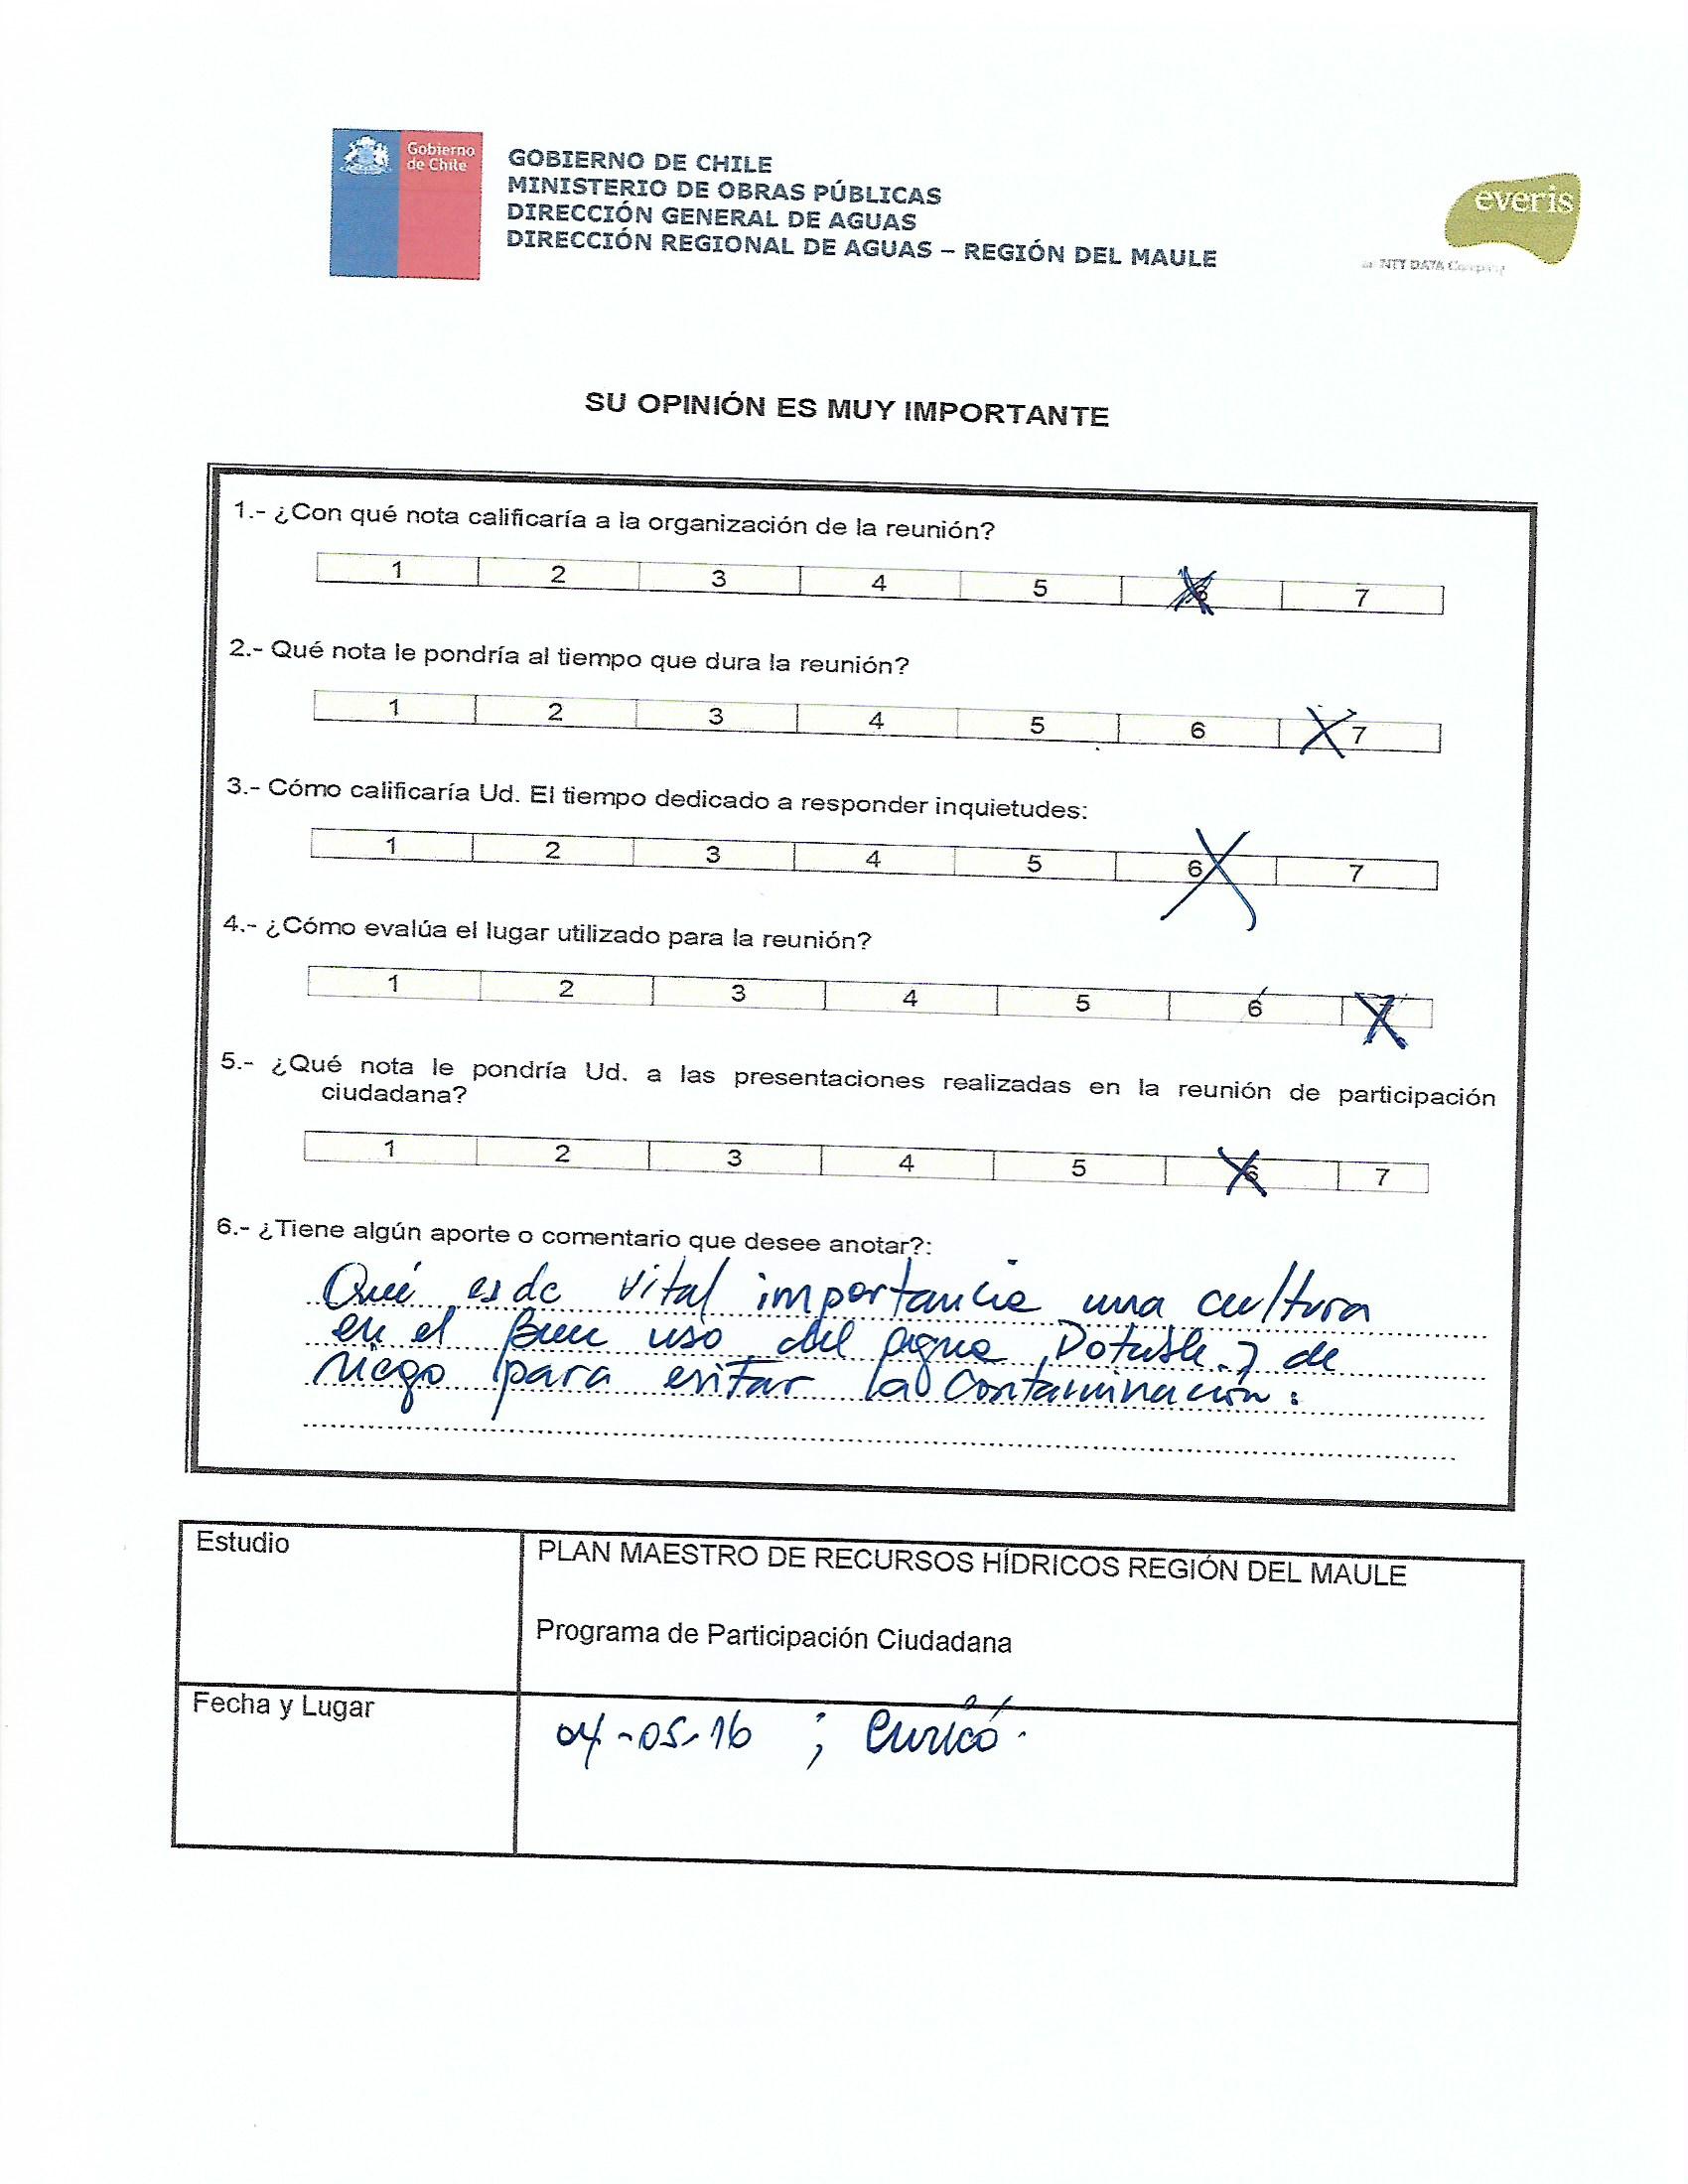 Gobierno
de Chile
GOBIERNO DE CHILE
MINISTERIO DE OBRAS PÚBLICAS
DIRECCIÓN GENERAL DE AGUAS
DIRECCIÓN REGIONAL DE AGUAS – REGIÓN DEL MAULE
everis
an NTT DATA Company
SU OPINIÓN ES MUY IMPORTANTE
1.- ¿Con qué nota calificaría a la organización de la reunión?
1 2 3 4 5 6 7
2.- Qué nota le pondría al tiempo que dura la reunión?
1 2 3 4 5 6 7
3.- Cómo calificaría Ud. El tiempo dedicado a responder inquietudes:
1 2 3 4 5 6 7
4.- ¿Cómo evalúa el lugar utilizado para la reunión?
1 2 3 4 5 6 7
5.- ¿Qué nota le pondría Ud. a las presentaciones realizadas en la reunión de participación
ciudadana?
1 2 3 4 5 6 7
6.- ¿Tiene algún aporte o comentario que desee anotar?:
Qué es de vital importancia una cultura
en el Buen uso del agua Potable y de
riego para evitar la contaminación.
Estudio
PLAN MAESTRO DE RECURSOS HÍDRICOS REGIÓN DEL MAULE
Programa de Participación Ciudadana
Fecha y Lugar
04-05-16 ; Curicó.